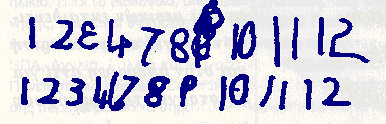 1 2 3 4 7 8 10 11 12
1 2 3 4 7 8 9 10 11 12